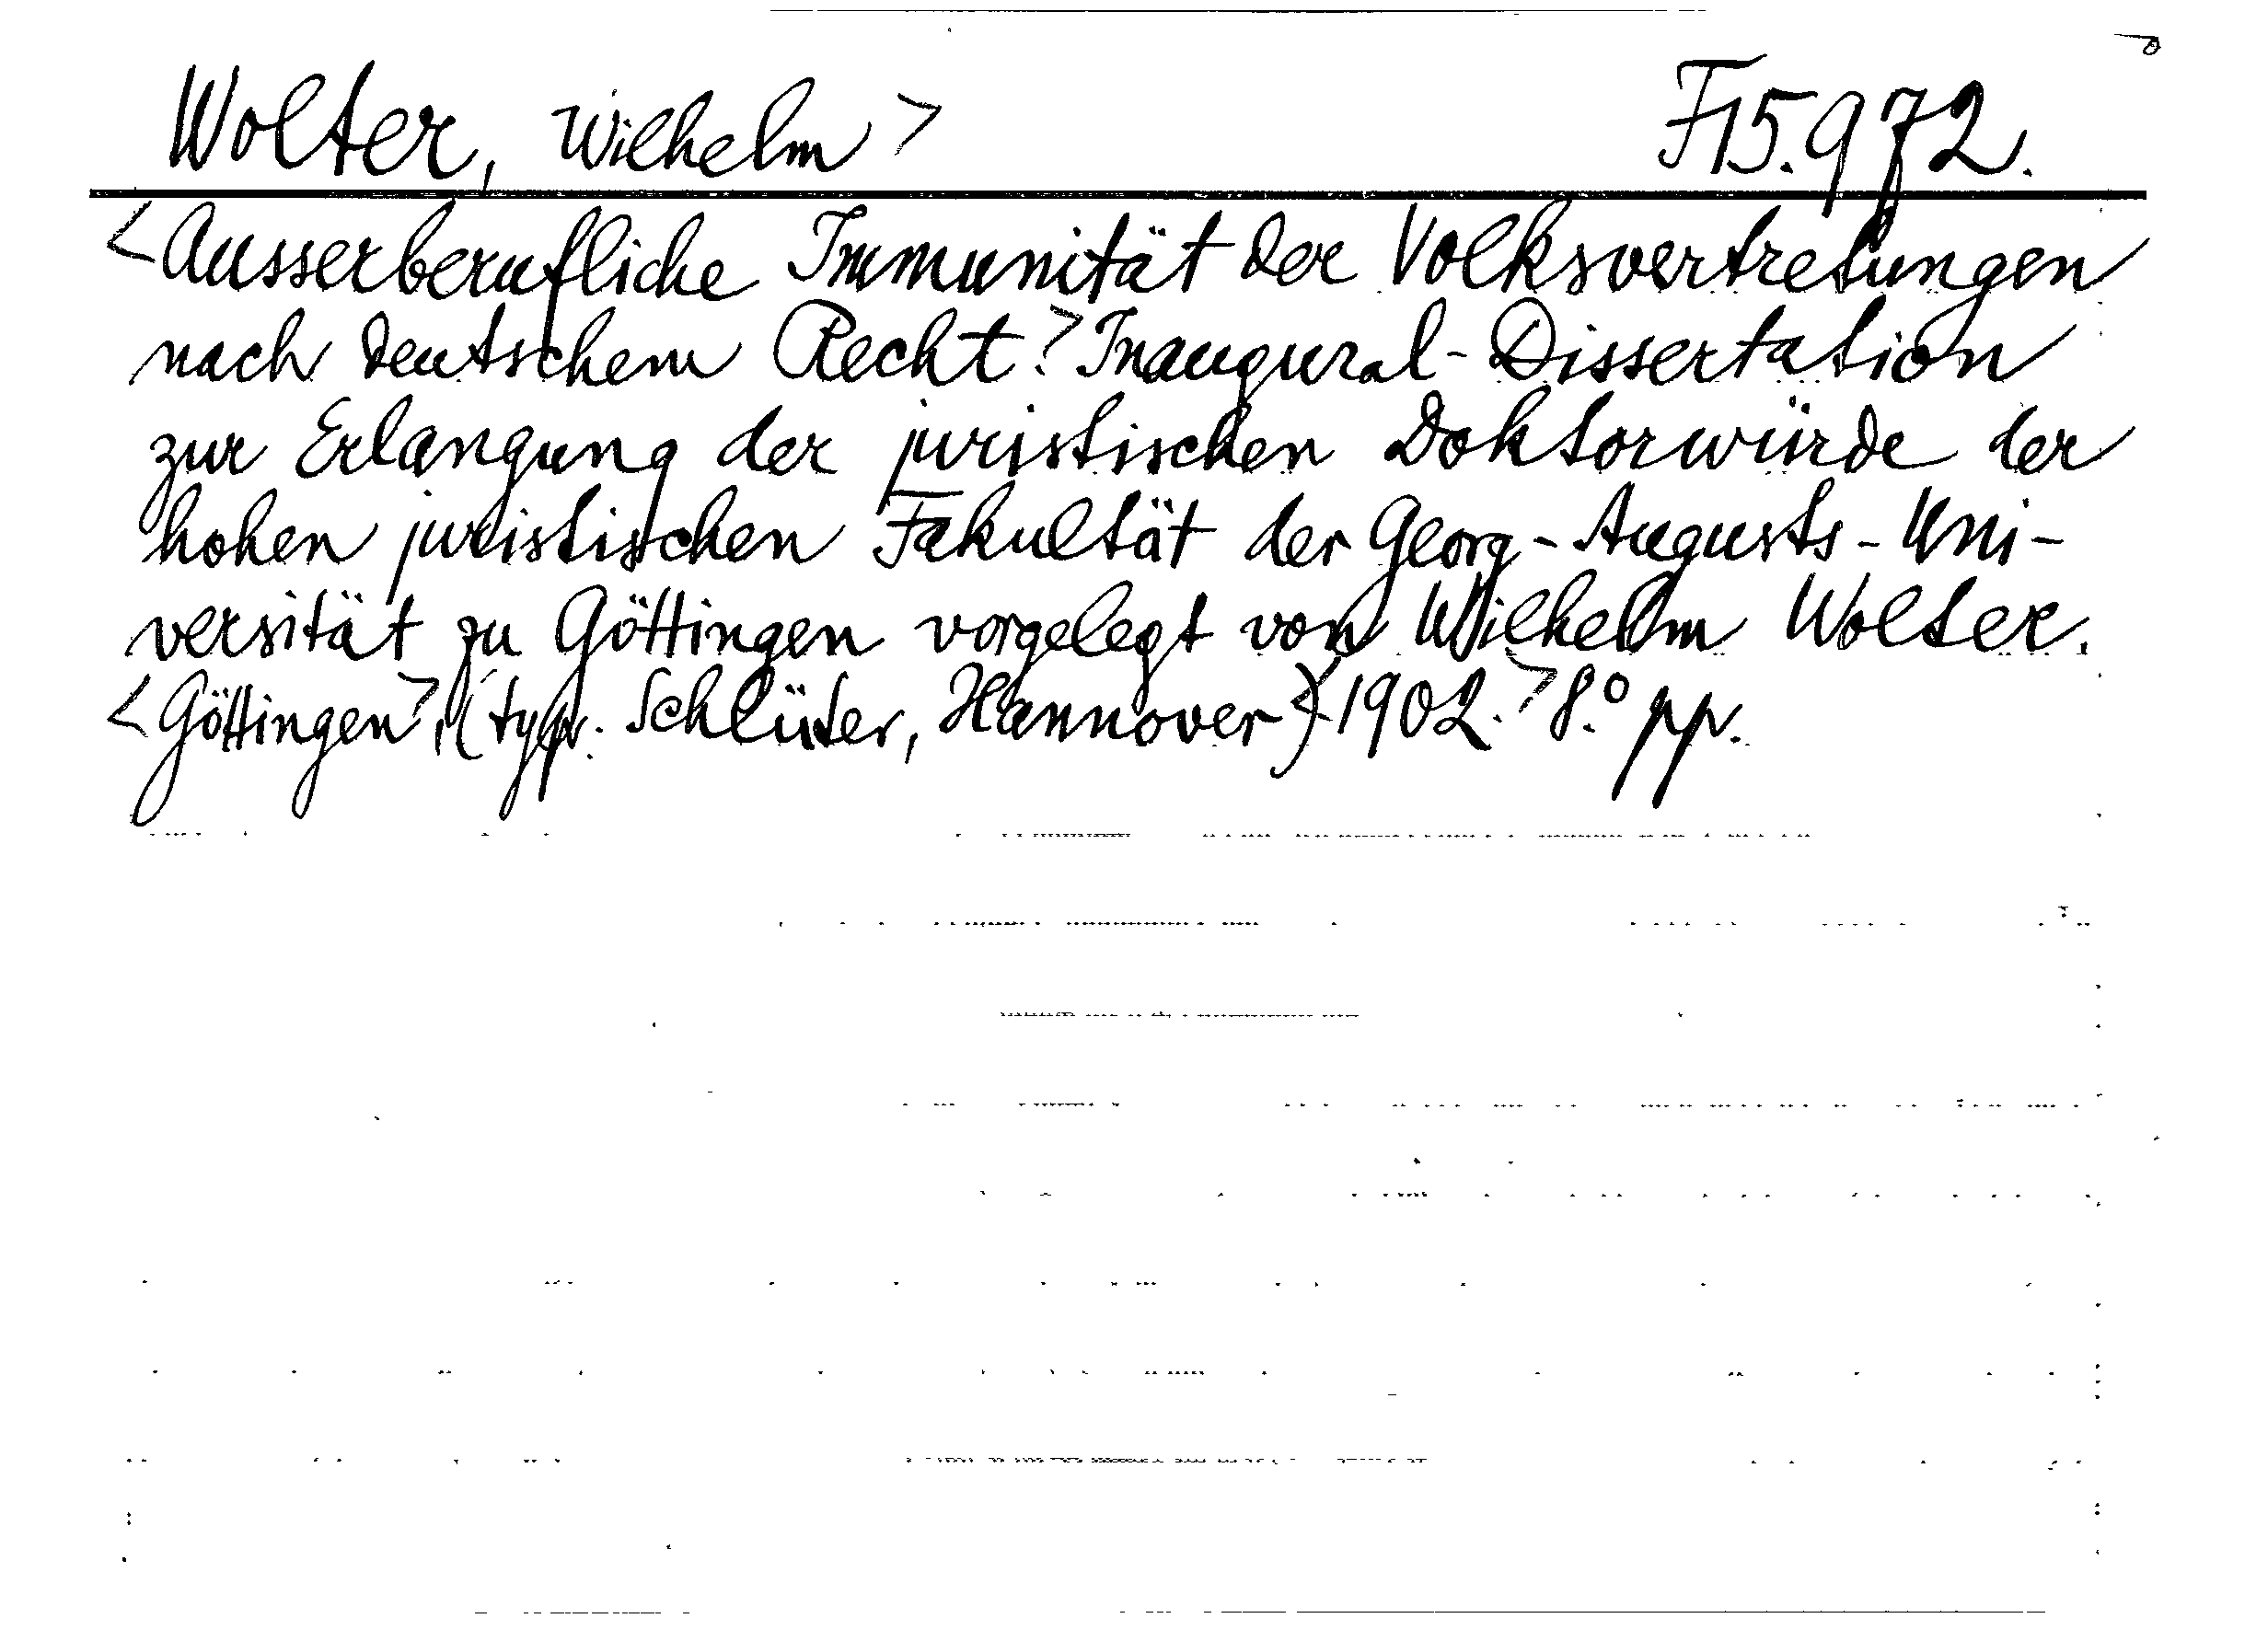 Wolter, Wilhelm> F15.972.
<Ausserberufliche Immunität der Volksvertretungen
nach deutschem Recht.> Inaugural-Dissertation
zur Erlangung der juristischen Doktorwürde der
hohen juristischen Fakultät der Georg-Augusts-Uni-
versität zu Göttingen vorgelegt von Wilhelm Wolter.
<Göttingen>, (typ. Schlüter, Hannover) <1902.> 8.° pp.